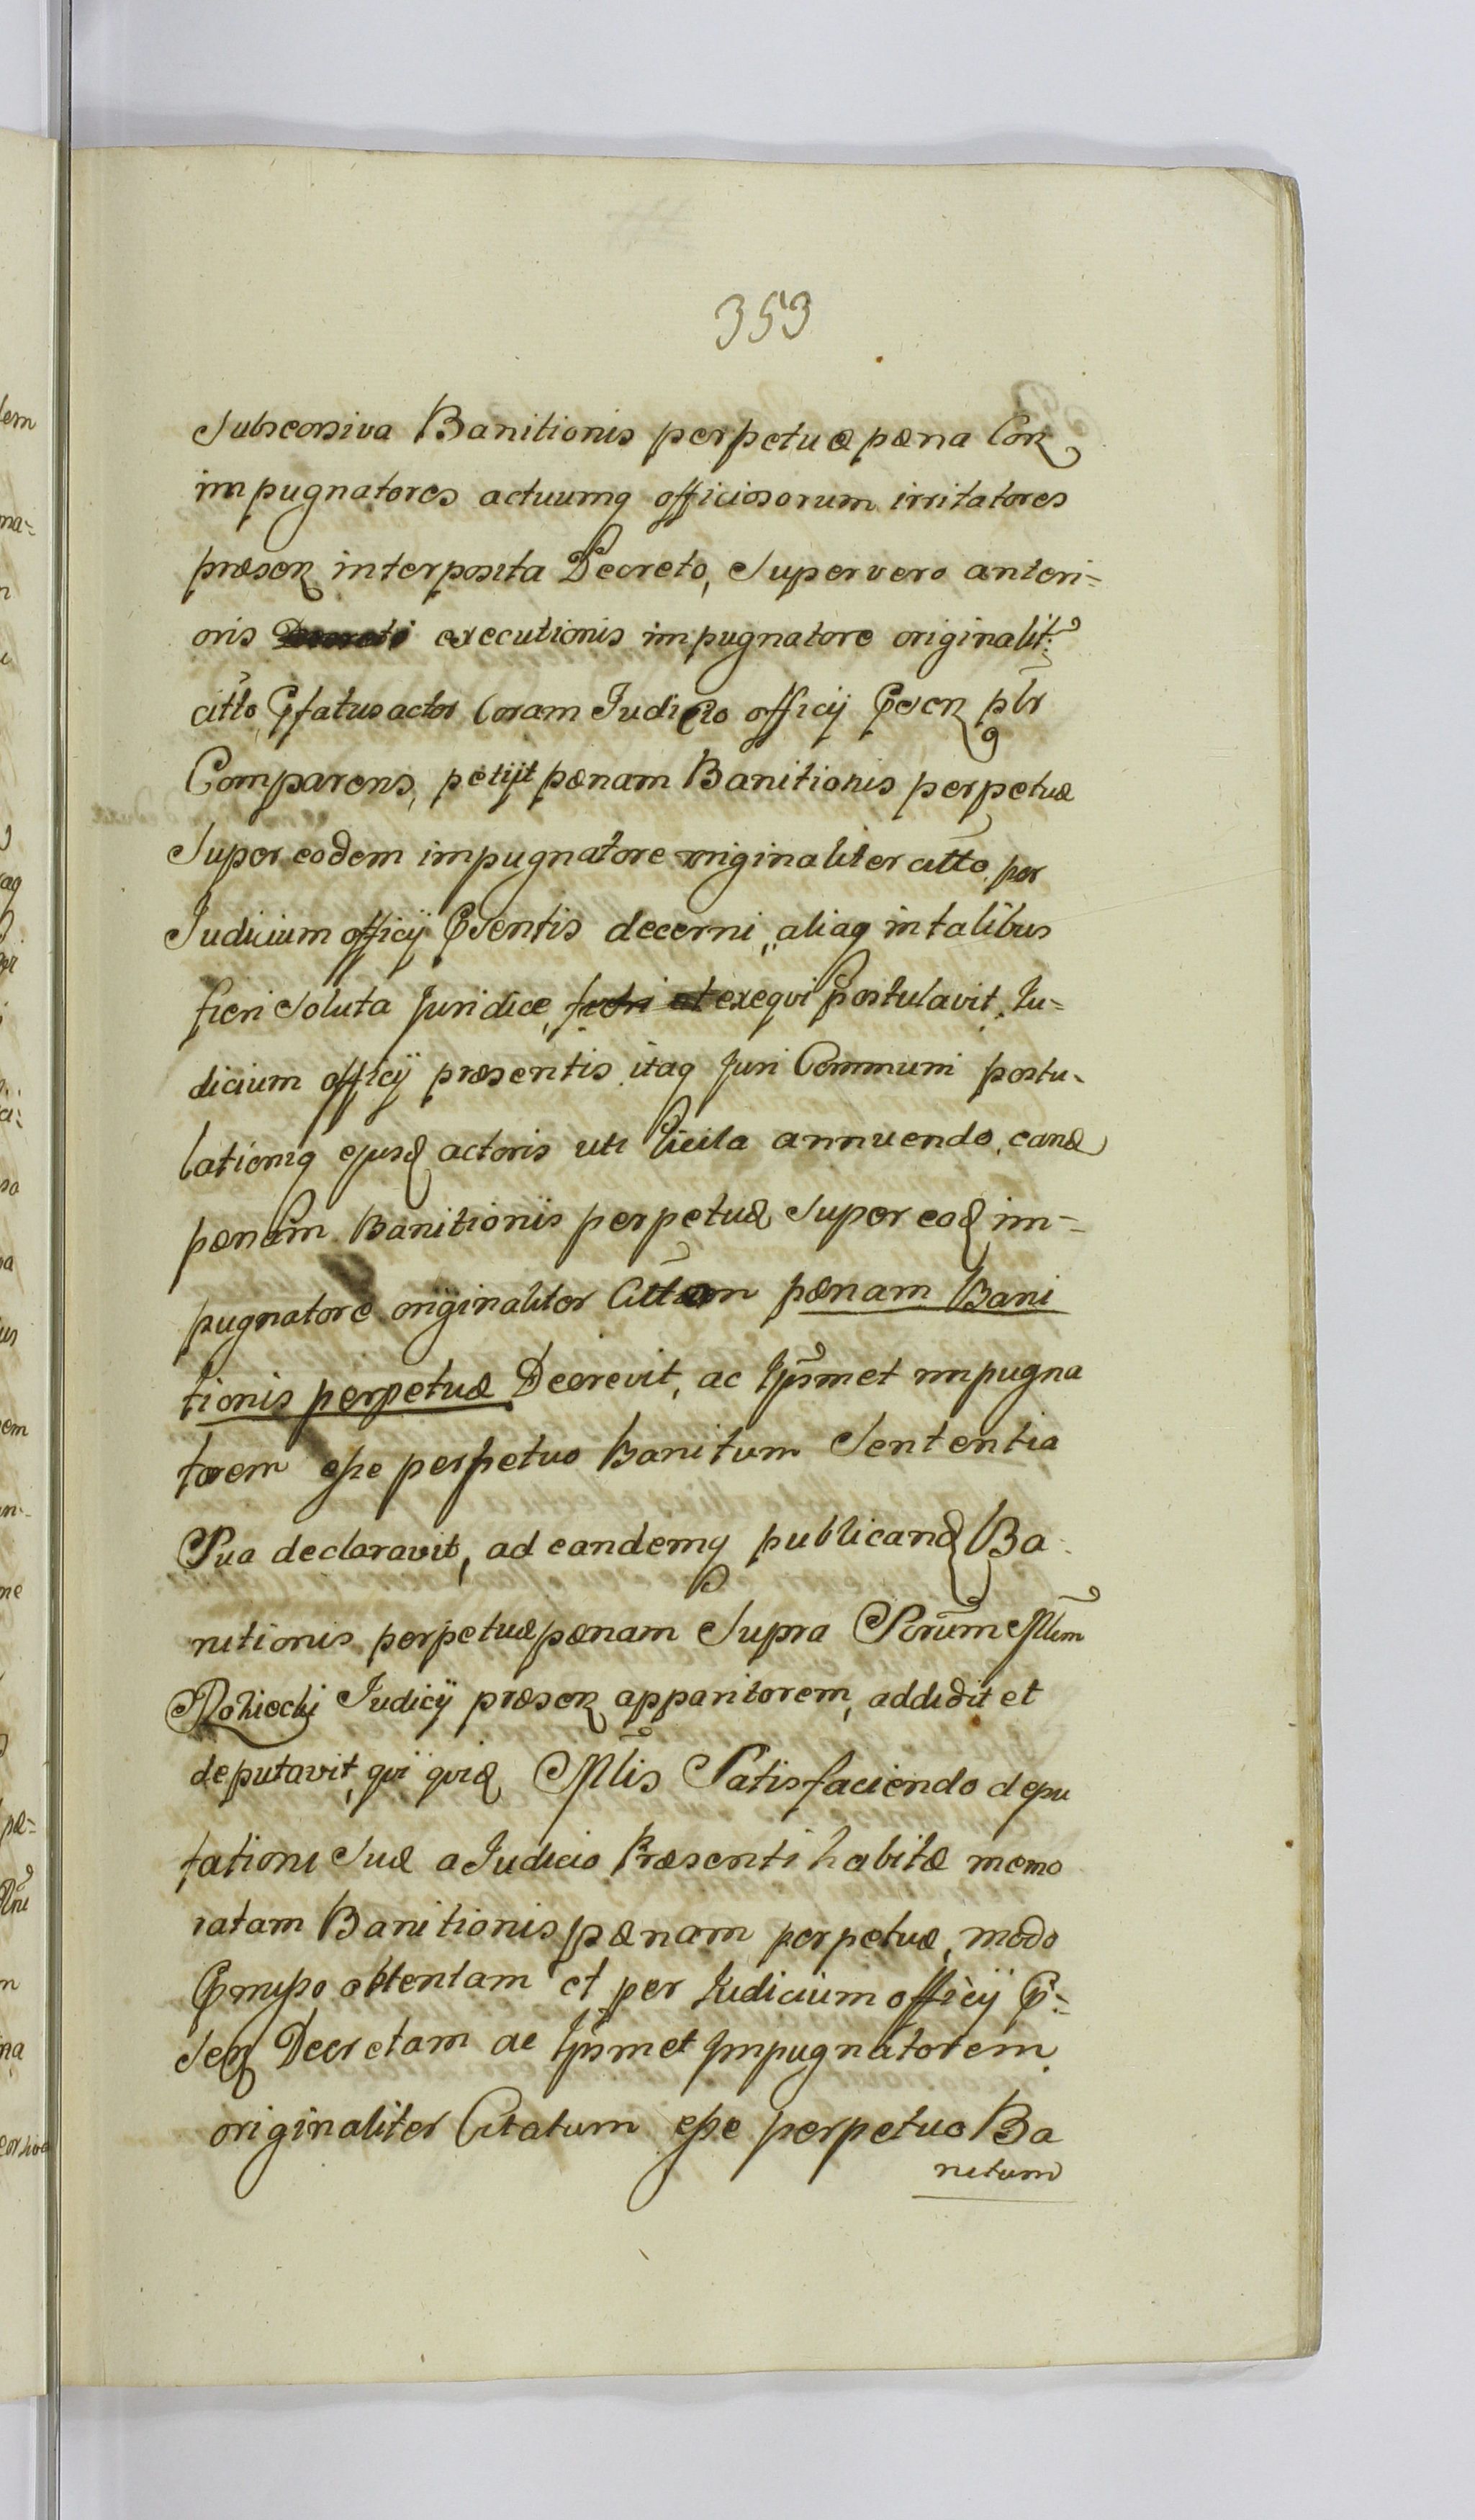 353
Subsecosiva Banitionis perpetuæ pæna Con
impugnatores actuumq officiosorum irritatores
præsen interposita Decreto, Super vero anteri=
oris executionis impugnatore originalit:
citto Pfatus actor Coram Judicio officij Psen plr
Comparens, petijt pænam Banitionis perpetuæ
Super eodem impugnatore originaliter citto per
Judicium officij Psentis decerni, aliaq in talibus
fieri Soluta Juridice, exeqvi postulavit. Iu=
dicium officij præsentis itaq Juri Communi postu-
lationiq ejusd actoris uti licita annuendo, eand
pænam Banitionis perpetuæ Super eod im=
pugnatore originaliter Cittum pænam Bani
tionis perpetuæ Decrevit, ac Ipsmet impugna
torem esse perpetuo Banitum Sententia
Sua declaravit, ad eandemq publicand Ba
nitionis perpetuæ pænam Supra Scrum Mlem
Judicij præsen apparitorem, addidit et
deputavit, qvi qvid Mlis Satisfaciendo depu
tationi Suæ a Judicio Præsenti habitæ memo
ratam Banitionis pænam perpetuæ, modo
Pmisso obtentam et per Judicium officij P=
Sen Decretam ac Ipsmet Impugnatorem
originaliter Citatum esse perpetuo Ba
nitum